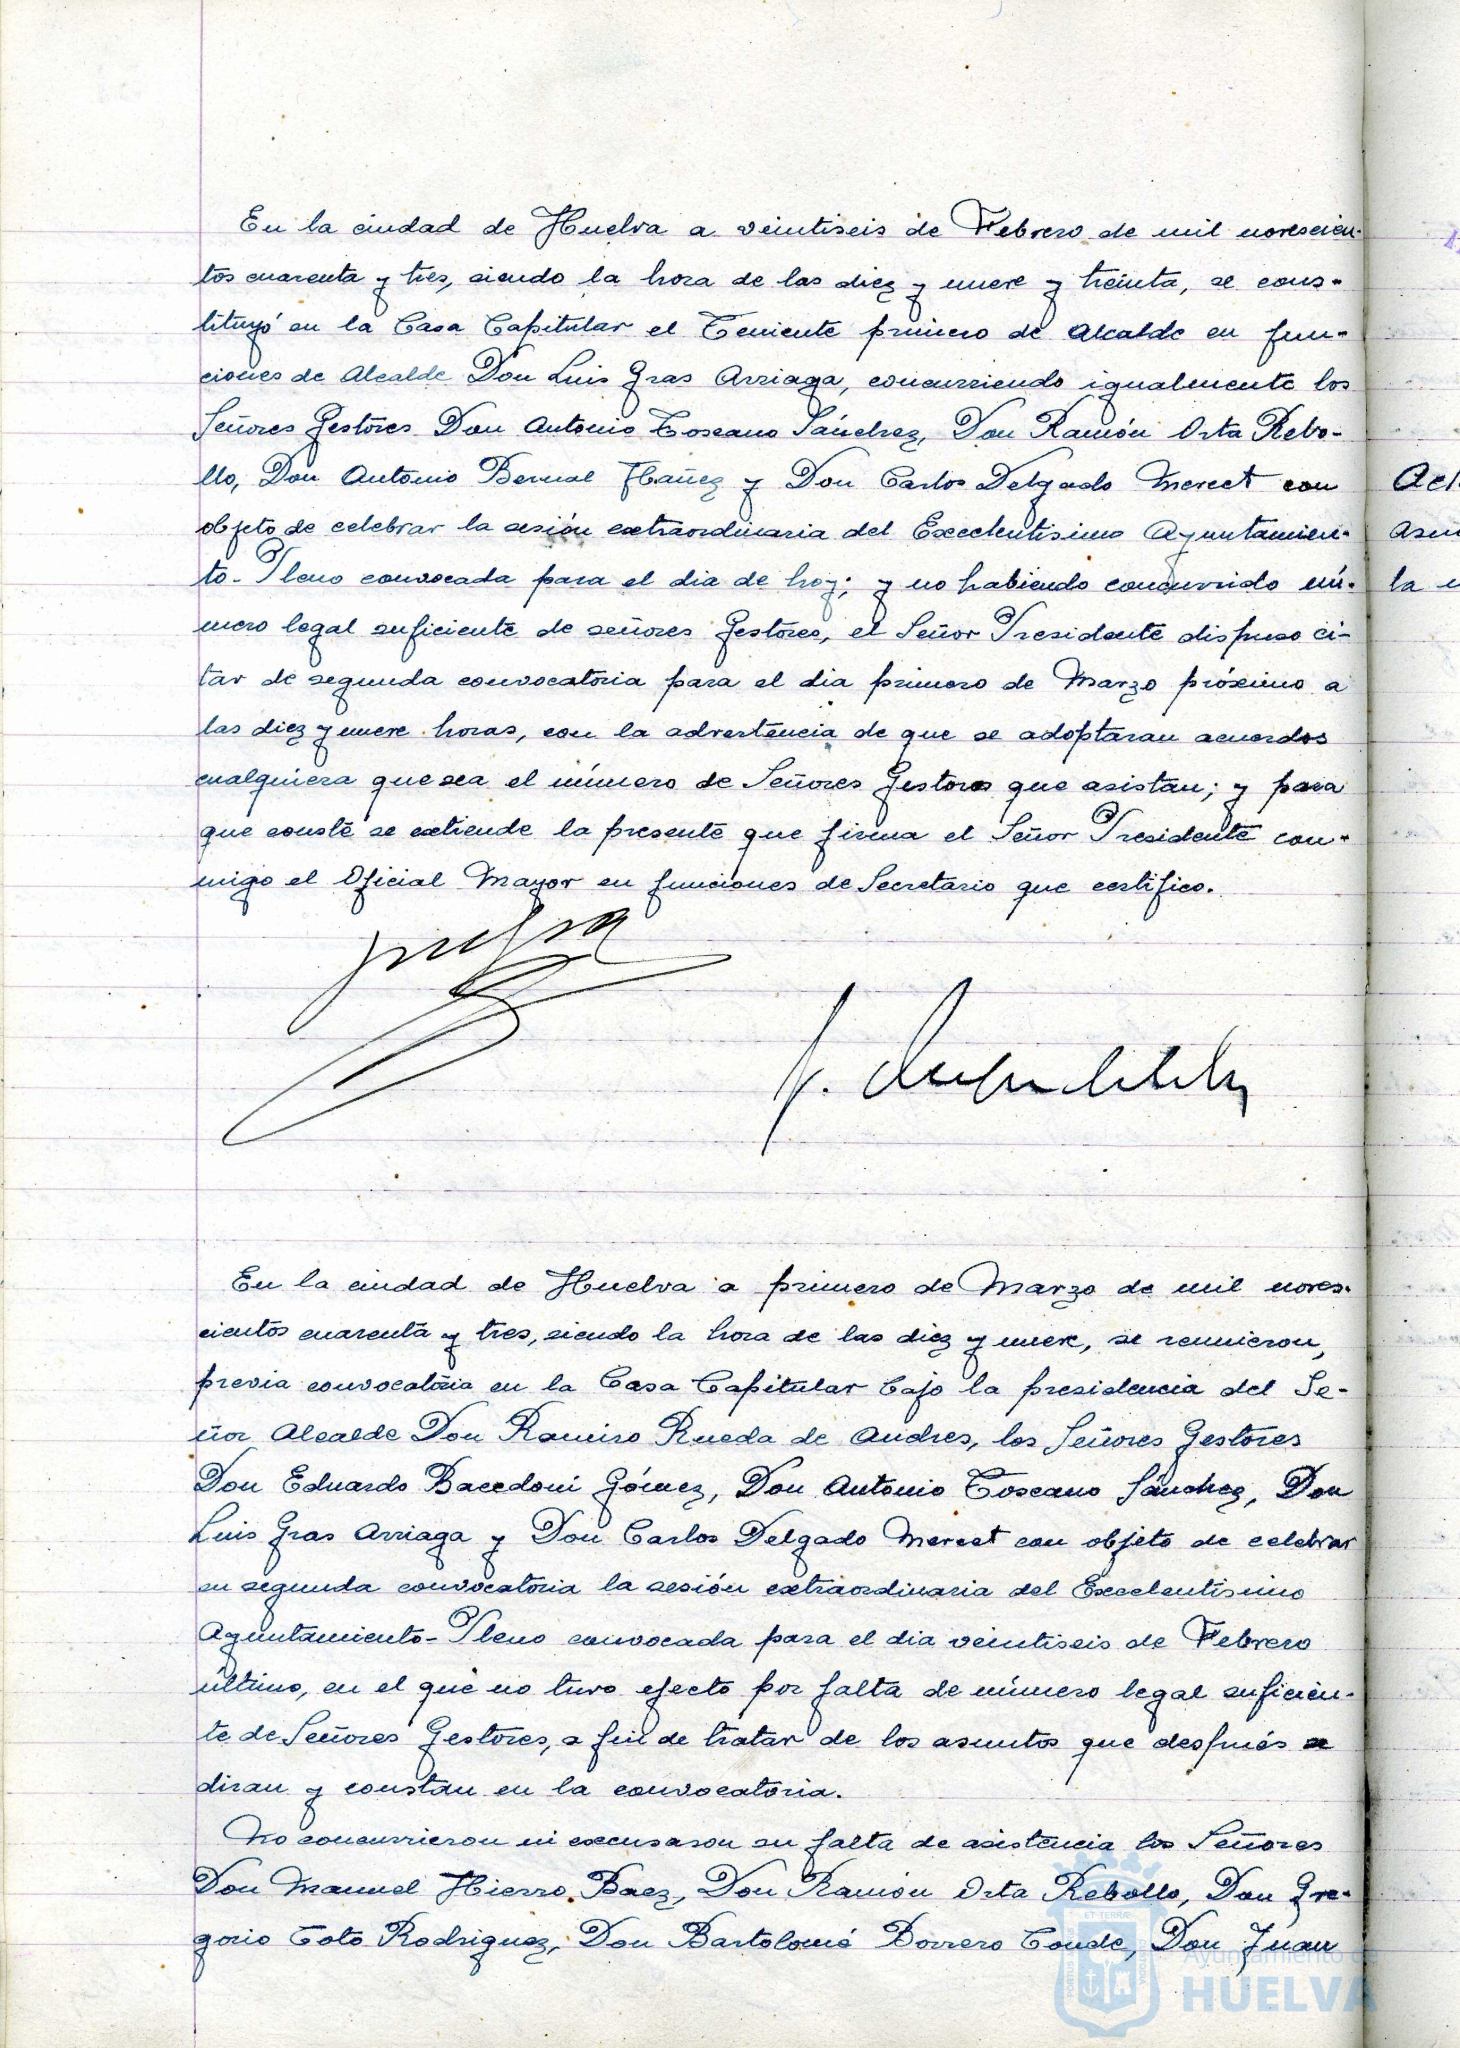 En la ciudad de Huelva a veintiseis de Febrero de mil novescien-
tos cuarenta y tres, siendo la hora de las diez y nueve y treinta, se cons-
tituyó en la Casa Capitular el Teniente primero de Alcalde en fun-
ciones de Alcalde Don Luis Gras Arriaga, concurriendo igualmente los
Señores Gestores Don Antonio Toscano Sánchez, Don Ramón Orta Rebo-
llo, Don Antonio Bernal Ibañez y Don Carlos Delgado Mercet con
objeto de celebrar la sesión extraordinaria del Excelentisimo Ayuntamien-
to-Pleno convocada para el dia de hoy; y no habiendo concurrido nú-
mero legal suficiente de señores Gestores, el Señor Presidente dispuso ci-
tar de segunda convocatoria para el dia primero de Marzo próximo a
las diez y nueve horas, con la advertencia de que se adoptaran acuerdos
cualquiera que sea el número de Señores Gestores que asistan; y para
que conste se extiende la presente que firma el Señor Presidente con-
migo el Oficial Mayor en funciones de Secretario que certifico.
En la ciudad de Huelva a primero de Marzo de mil noves-
cientos cuarenta y tres, siendo la hora de las diez y nueve, se reunieron,
previa convocatoria en la Casa Capitular bajo la presidencia del Se-
ñor Alcalde Don Ramiro Rueda de Andres, los Señores Gestores
Don Eduardo Bacedoni Gómez, Don Antonio Toscano Sánchez, Don
Luis Gras Arriaga y Don Carlos Delgado Mercet con objeto de celebrar
en segunda convocatoria la sesión extraordinaria del Excelentisimo
Ayuntamiento-Pleno convocada para el dia veintiseis de Febrero
último, en el que no tuvo efecto por falta de número legal suficien-
te de Señores Gestores, a fin de tratar de los asuntos que después se
diran y constan en la convocatoria.
No concurrieron ni excusaron su falta de asistencia los Señores
Don Manuel Hierro Baez, Don Ramón Orta Rebollo, Don Gre-
gorio Toto Rodriguez, Don Bartolomé Borrero Conde, Don Juan
Ayuntamiento de
HUELVA